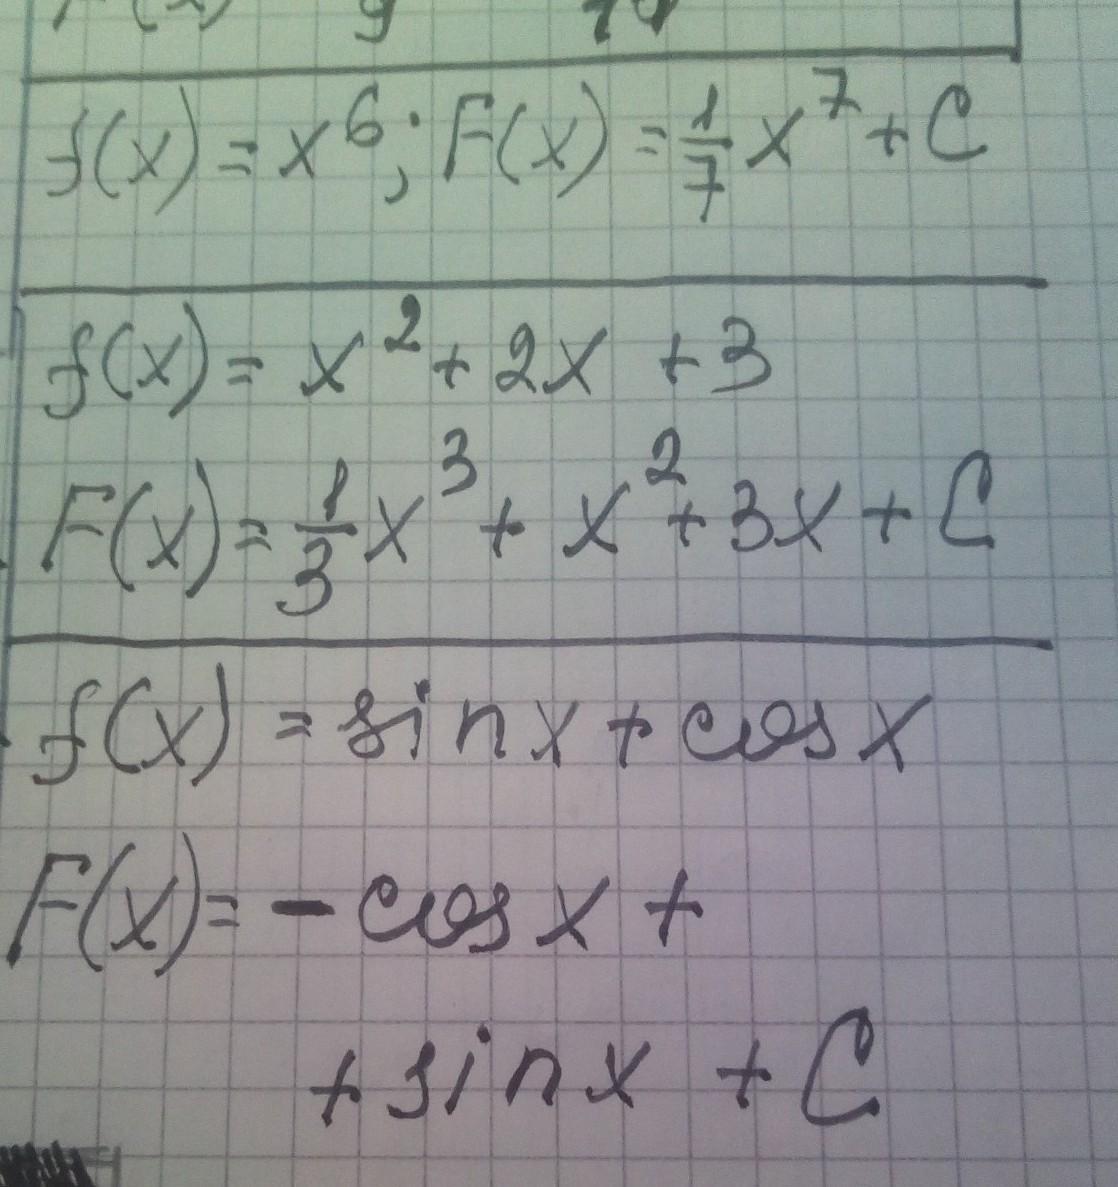 f(x) = x⁶; F(x) = 1/7 x⁷ + C
f(x) = x² + 2x + 3
F(x) = 1/3 x³ + x² + 3x + C
f(x) = sin x + cos x
F(x) = - cos x +
+ sin x + C